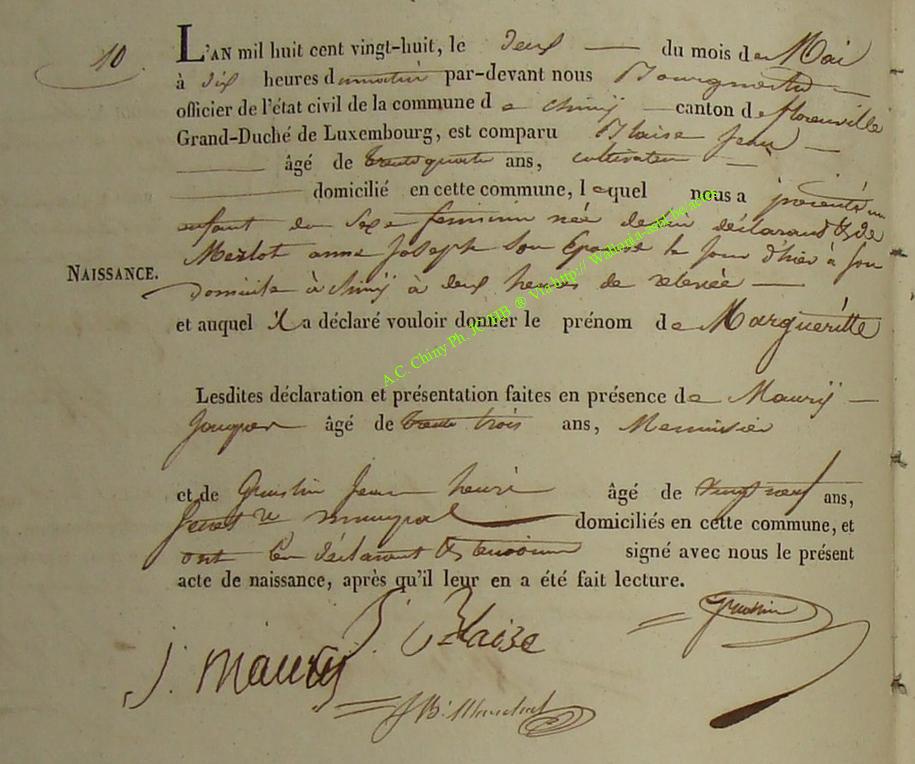 10.
L'AN mil huit cent vingt-huit, le deux du mois de Mai
à dix heures du matin par-devant nous
officier de l'état civil de la commune de Chiny canton de florenville
Grand-Duché de Luxembourg, est comparu Blaise Jean
âgé de trente quatre ans, cultivateur
domicilié en cette commune, lequel nous a présenté un
enfant du Sexe feminin née de lui déclarant & de
Merlot anne Joseph Son Epouse le jour d'hier à Son
NAISSANCE.
domicile à Chiny à deux heures de relevée
et auquel il a déclaré vouloir donner le prénom de Margueritte
Lesdites déclaration et présentation faites en présence de Maurÿ
âgé de trente trois ans, Menuisier
et de Grustin Jean henri âgé de vingt neuf ans,
domiciliés en cette commune, et
ont Le déclarant & temoins signé avec nous le présent
acte de naissance, après qu'il leur en a été fait lecture.
J. Blaise
Grustin
J. Maurÿ
A.C. Chiny Ph. ® Via http://